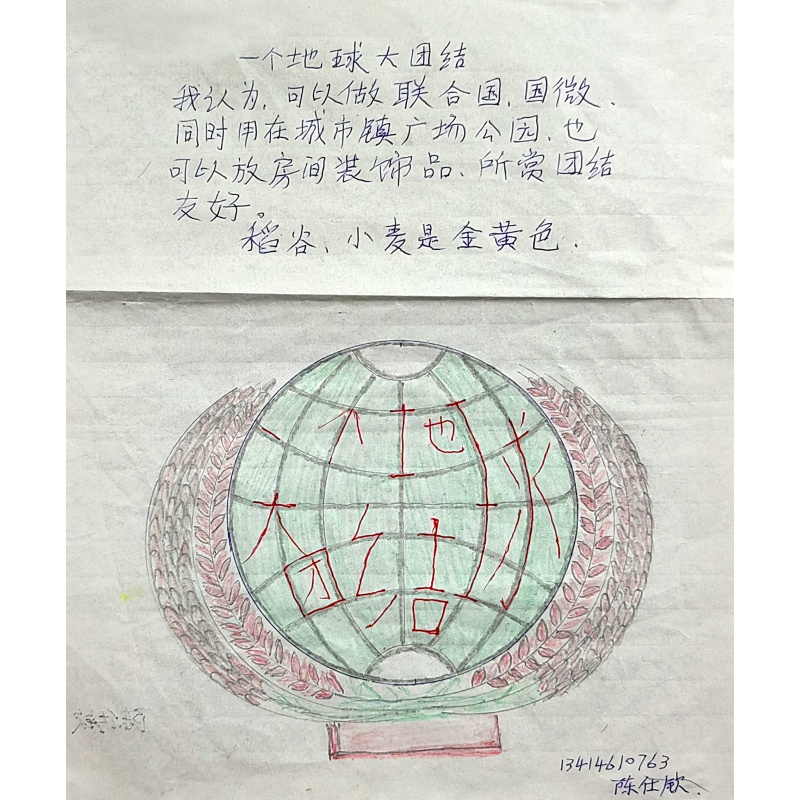 一个地球大团结
我认为,可以做联合国,国微、
同时用在城市镇广场公园,也
可以放房间装饰品、所赏团结
友好。
稻谷、小麦是金黄色.
一个地球
大团结
13414610763
陈仕钦.